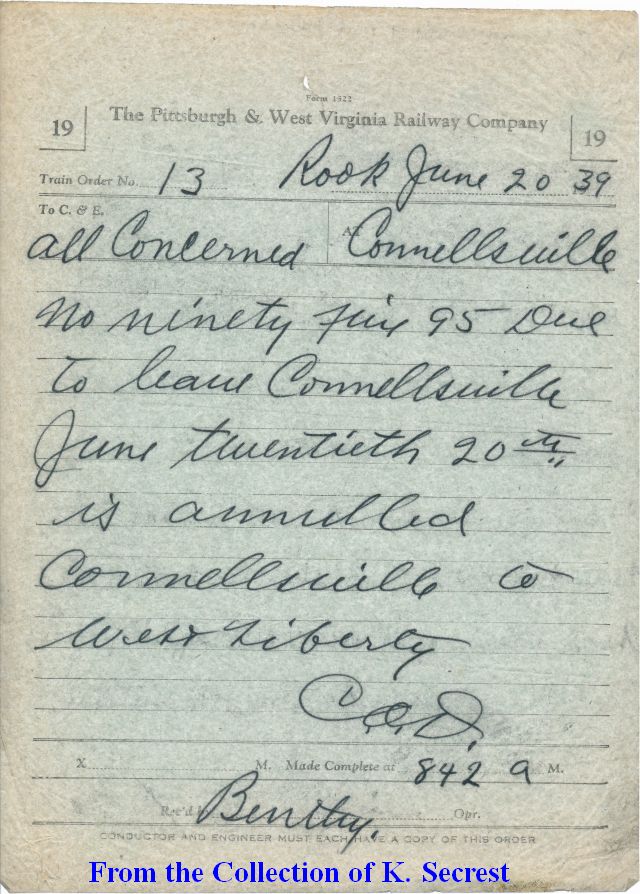 Form 1522
19 The Pittsburgh & West Virginia Railway Company 19
Train Order No. 13 Rook June 20 39
To C. & E. At
all Concerned Connellsville
No ninety five 95 Due
to leave Connellsville
June twentieth 20th
is annulled
Connellsville to
West Liberty
C.O.D.
X M. Made Complete at 842 a M.
Rec'd by Opr.
CONDUCTOR AND ENGINEER MUST EACH HAVE A COPY OF THIS ORDER
From the Collection of K. Secrest